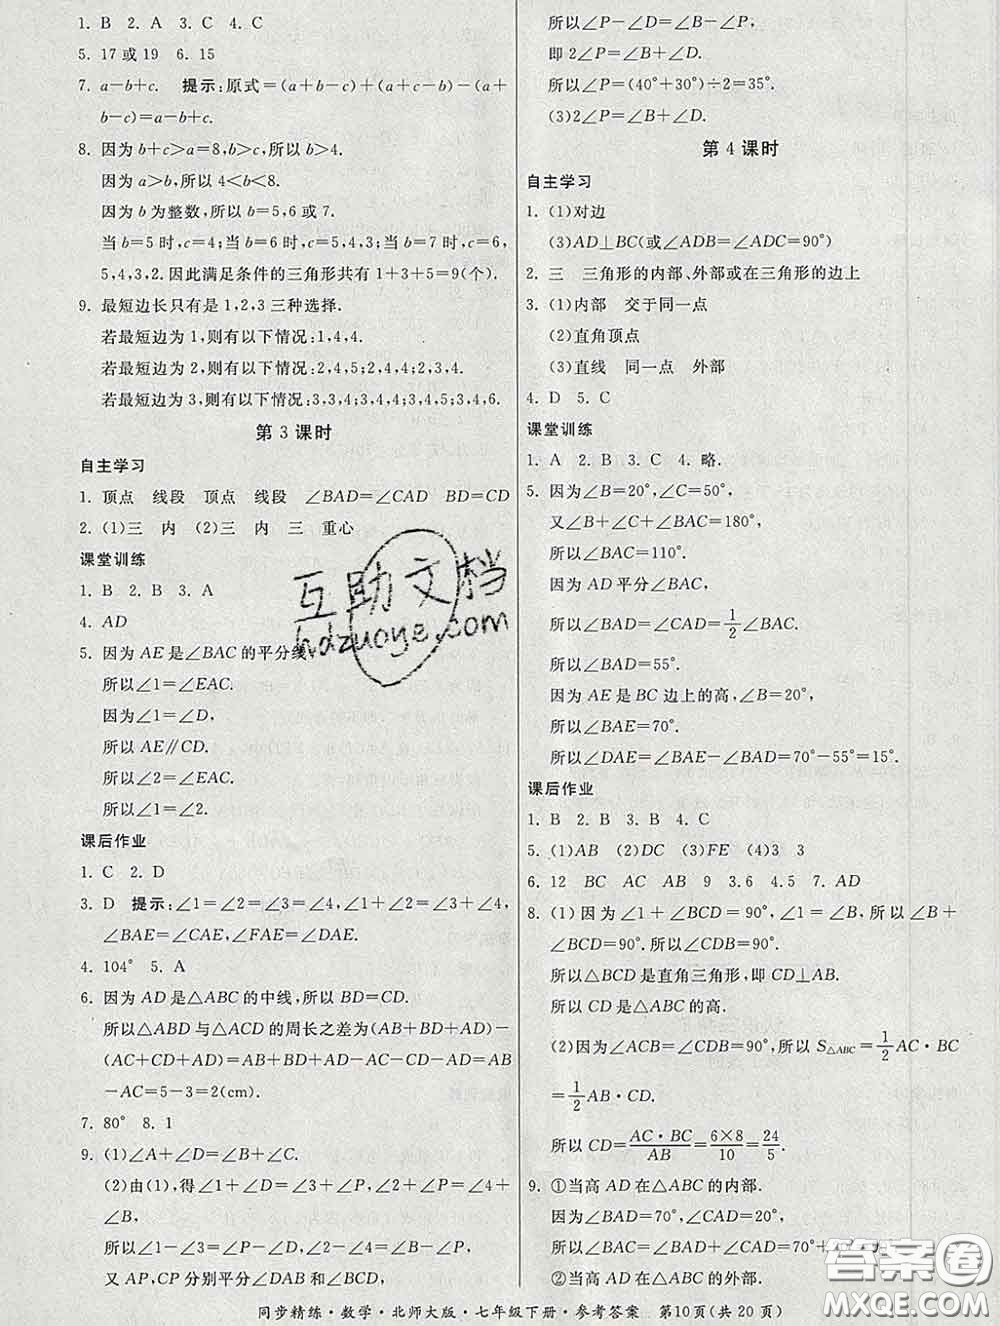 1. B  2. A  3. C  4. C
5. 17 或 19  6. 15
7. a−b+c.  提示:原式=(a+b−c)+(a+c−b)−(a+
b−c)=a−b+c.
8. 因为 b+c>a=8,b>c,所以 b>4.
因为 a>b,所以 4<b<8.
因为 b 为整数,所以 b=5,6 或 7.
当 b=5 时,c=4;当 b=6 时,c=5,4,3;当 b=7 时,c=6,
5,4,3,2. 因此满足条件的三角形共有 1+3+5=9(个).
9. 最短边长只有是 1,2,3 三种选择.
若最短边为 1,则有以下情况:1,4,4.
若最短边为 2,则有以下情况:2,4,5;2,4,4;2,3,4.
若最短边为 3,则有以下情况:3,3,4;3,4,4;3,4,5;3,4,6.
第 3 课时
自主学习
1. 顶点  线段  顶点  线段  ∠BAD=∠CAD  BD=CD
2. (1)三  内  (2)三  内  三  重心
课堂训练
1. B  2. B  3. A
4. AD
5. 因为 AE 是∠BAC 的平分线,
所以∠1=∠EAC.
因为∠1=∠D,
所以 AE∥CD.
所以∠2=∠EAC.
所以∠1=∠2.
课后作业
1. C  2. D
3. D  提示:∠1=∠2=∠3=∠4,∠1+∠2=∠3+∠4,
∠BAE=∠CAE,∠FAE=∠DAE.
4. 104°  5. A
6. 因为 AD 是△ABC 的中线,所以 BD=CD.
所以△ABD 与△ACD 的周长之差为(AB+BD+AD)−
(AC+CD+AD)=AB+BD+AD−AC−CD−AD=AB
−AC=5−3=2(cm).
7. 80°  8. 1
9. (1)∠A+∠D=∠B+∠C.
(2)由(1),得∠1+∠D=∠3+∠P,∠2+∠P=∠4+
∠B,
所以∠1−∠3=∠P−∠D,∠2−∠4=∠B−∠P,
又 AP,CP 分别平分∠DAB 和∠BCD,
所以∠P−∠D=∠B−∠P,
即 2∠P=∠B+∠D.
所以∠P=(40°+30°)÷2=35°.
(3)2∠P=∠B+∠D.
第 4 课时
自主学习
1. (1)对边
(3)AD⊥BC(或∠ADB=∠ADC=90°)
2. 三  三角形的内部、外部或在三角形的边上
3. (1)内部  交于同一点
(2)直角顶点
(3)直线  同一点  外部
4. D  5. C
课堂训练
1. A  2. B  3. C  4. 略.
5. 因为∠B=20°,∠C=50°,
又∠B+∠C+∠BAC=180°,
所以∠BAC=110°.
因为 AD 平分∠BAC,
所以∠BAD=∠CAD=1/2∠BAC.
所以∠BAD=55°.
因为 AE 是 BC 边上的高,∠B=20°,
所以∠BAE=70°.
所以∠DAE=∠BAE−∠BAD=70°−55°=15°.
课后作业
1. B  2. B  3. B  4. C
5. (1)AB  (2)DC  (3)FE  (4)3  3
6. 12  BC  AC  AB  9  3.6  4.5  7. AD
8. (1)因为∠1+∠BCD=90°,∠1=∠B,所以∠B+
∠BCD=90°. 所以∠CDB=90°.
所以△BCD 是直角三角形,即 CD⊥AB.
所以 CD 是△ABC 的高.
(2)因为∠ACB=∠CDB=90°,所以 S△ABC=1/2AC·BC
=1/2AB·CD.
所以 CD=AC·BC/AB=6×8/10=24/5.
9. ①当高 AD 在△ABC 的内部.
因为∠BAD=70°,∠CAD=20°,
所以∠BAC=∠BAD+∠CAD=70°+
②当高 AD 在△ABC 的外部.
同步精练·数学·北师大版·七年级下册·参考答案  第10页(共 20 页)
互助文档
hdzuoye.com
答案圈
MXQE.COM